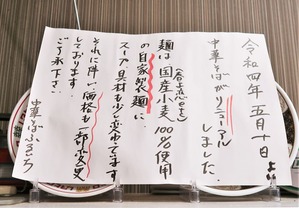 令和四年 五月十日より
中華そばがリニューアル
しました。
麺は国産小麦100%使用
の自家製麺に
スープ、具材も少し変ってます
それに伴い価格も一部変更
しております。
ご了承下さい
中華そばふるいち